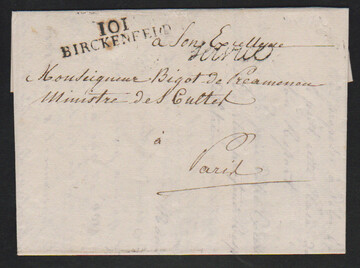 101
BIRCKENFELD
à Son Excellence
Monseigneur Bigot de Préameneu
Ministre des Cultes
à
Paris